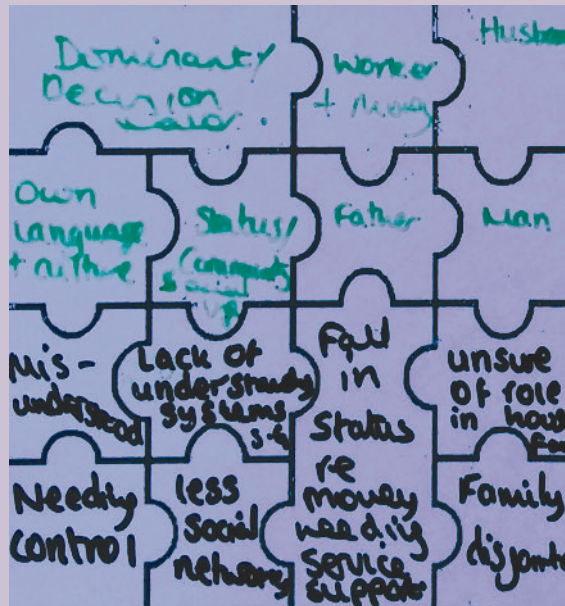 Dominant/
Decision
Maker
Worker
+ Money
Own
language
+ culture
Status/
Community
Father
Man
Mis-
understood
Lack of
understandg
systems
Fall
in
Status
re
money
needing
service
support
unsure
of role
in
Needing
control
less
social
networks
Family